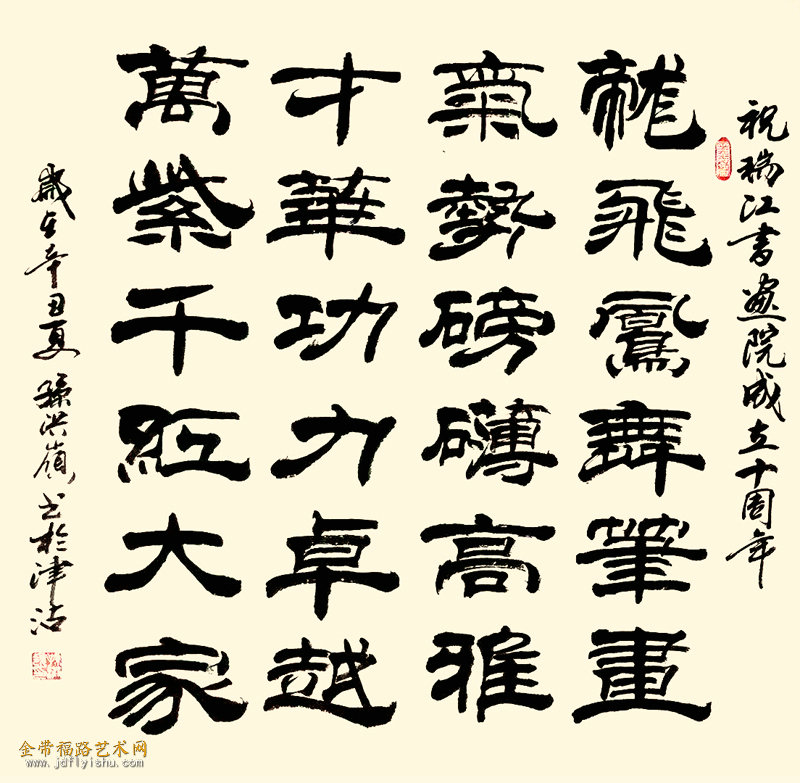 祝瑞江書畫院成立十周年
龍飛鳳舞筆畫
氣勢磅礴高雅
才華功力卓越
萬紫千紅大家
歲在辛丑夏 孫洪嶺书於津沽
金带福路艺术网
www.jdflyishu.com